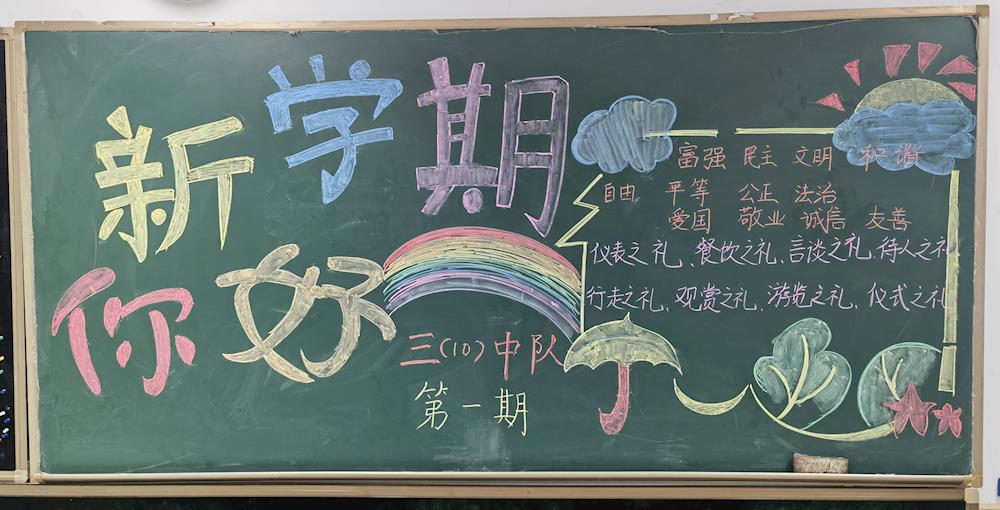 新学期
你好
三(10)中队
第一期
富强 民主 文明 和谐
自由 平等 公正 法治
爱国 敬业 诚信 友善
仪表之礼、餐饮之礼、言谈之礼、待人之礼
行走之礼、观赏之礼、游览之礼、仪式之礼